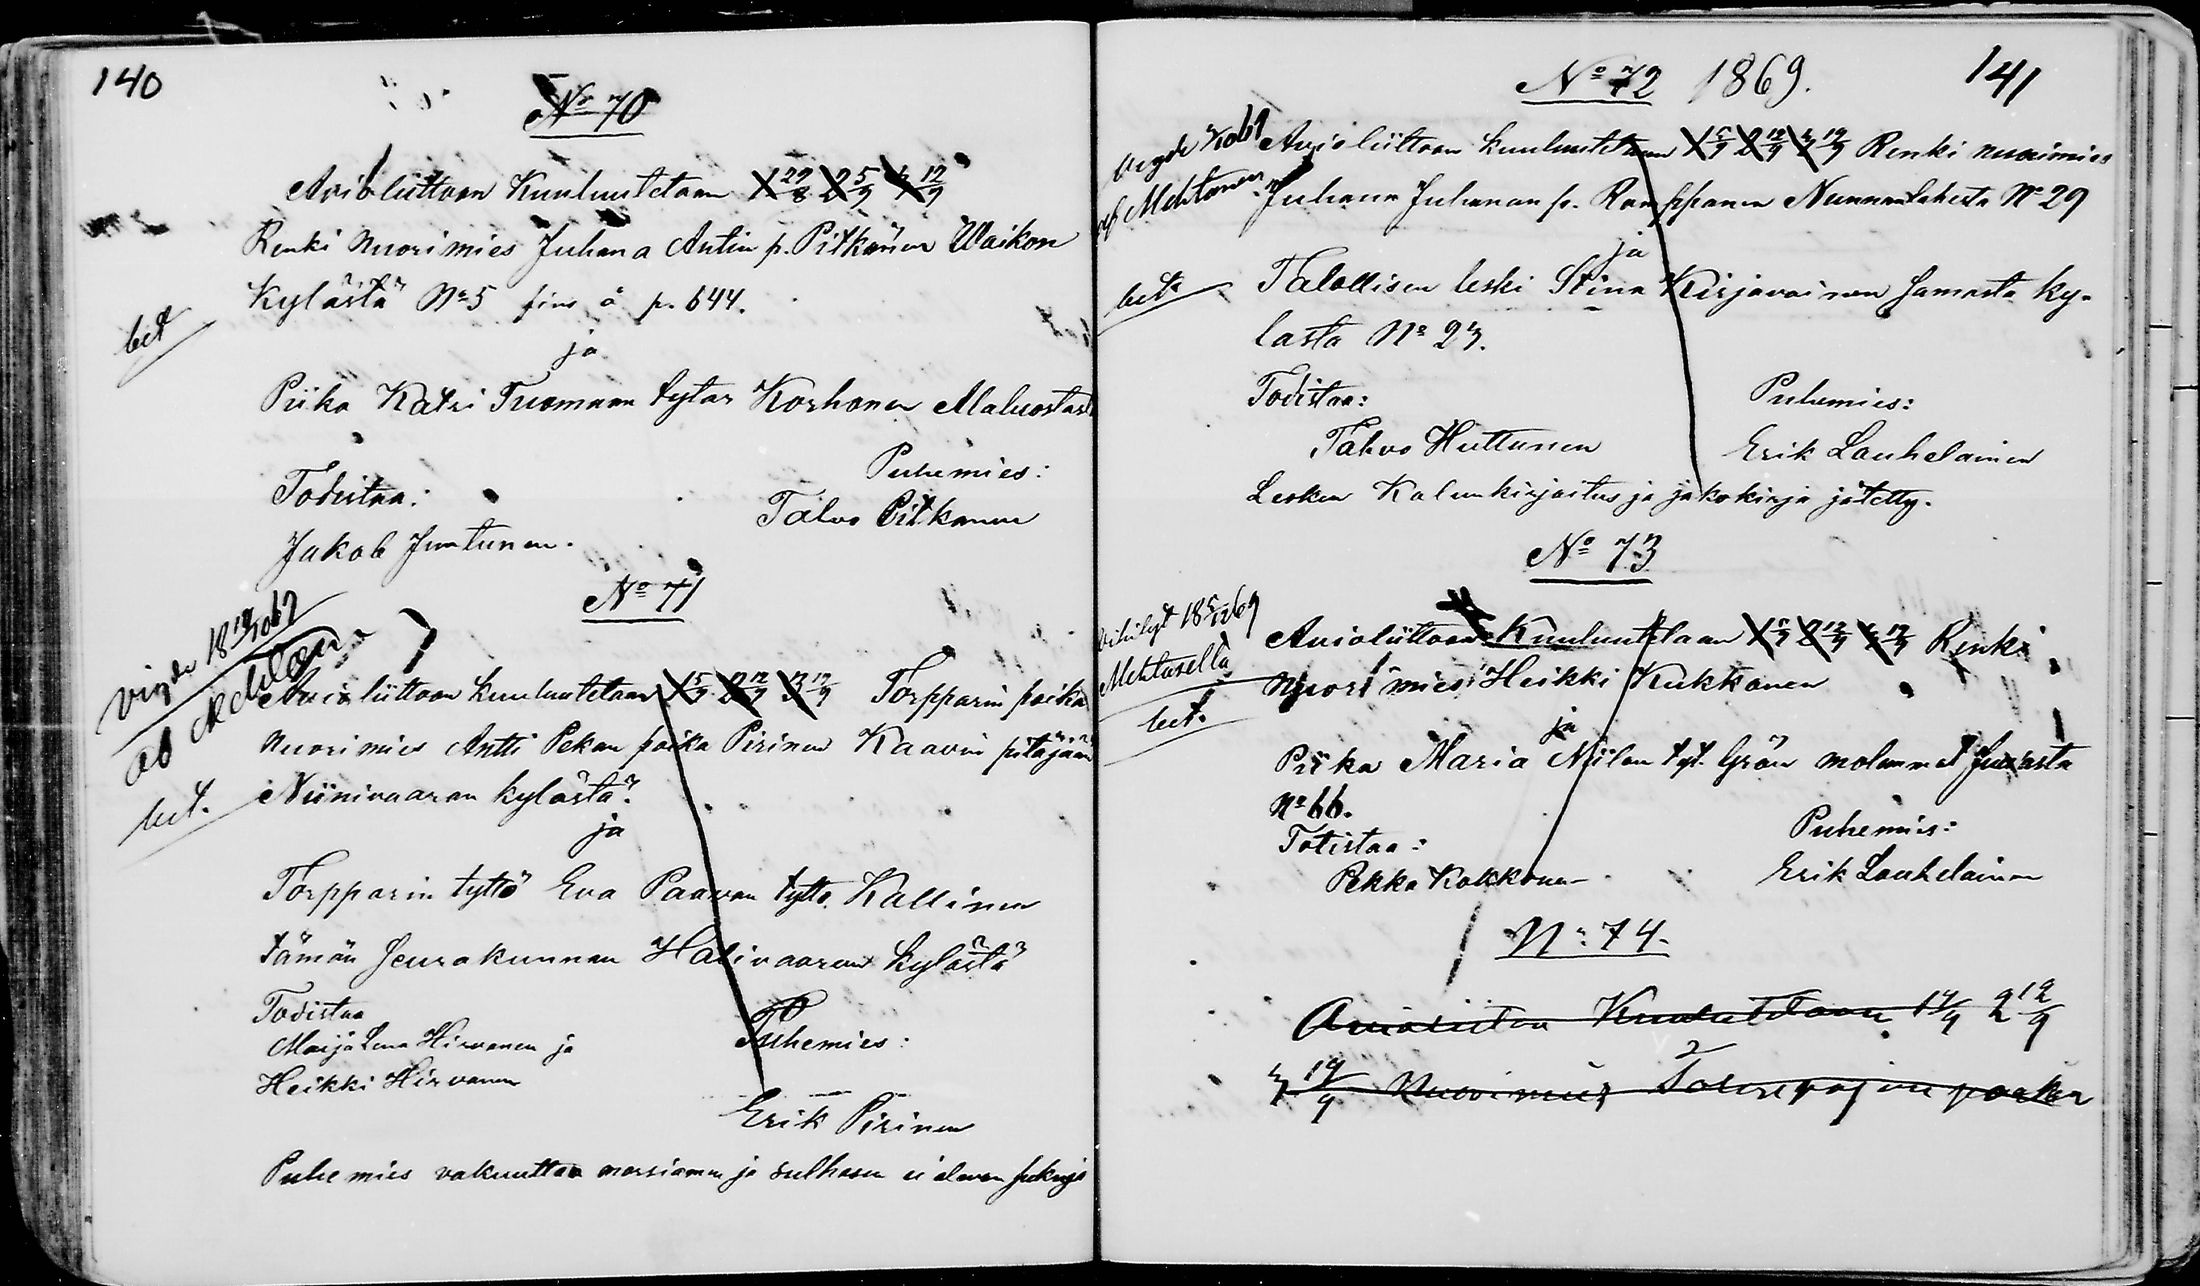 140
No 70
Avioliittoon Kuuluutetaan 1 29/8 2 5/9 3 12/9
Renki Nuorimies Juhana Antin p. Pitkänen Waikon
Kylästä No 5 fins å p. 644.
bet
ja
Piika Katri Tuomaan tytar Korhonen
Puhemies:
Todistaa:
Talvo Pitkanen
Jakob Juntunen.
No 71
Vigde 18 19/10 69
af
Avioliittoon kuuluutetaan 1 5/9 2 12/9 3 19/9 Torpparin poika
nuorimies Antti Pekan poika Pirinen Kaavin pitäjään
bet. Niinivaaran kylästä.
ja
Torpparin tyttö Eva Paavon tytto Kallinen
tämän Seurakunnan Halivaaran kylästä
Todistaa
Maija Lena Hirvonen ja
Puhemies:
Heikki Hirvonen
Erik Pirinen
Puhemies vakuuttaa morsiamen ja sulhasen ei olevan sukuja
No 72 1869. 141
Vigde
Avioliittoon kuuluutetaan 1 5/9 2 12/9 3 19/9 Renki nuorimies
af Mehtonen
Juhana Juhanan p. Ramppanen Nunnanlahesta No 29
ja
bet.
Talollisen leski Stina Kirjavainen samasta ky-
lasta No 23.
Todistaa: Puhemies:
Tahvo Huttunen Erik Lauhelainen
Lesken Kalunkirjoitus ja jakokirja jätetty.
No 73
Vihityt 18 5/12 69
Mehtosella
Avioliittoon Kuuluutetaan 1 5/9 2 12/9 3 19/9 Renki
Nuori mies Heikki Kukkonen
bet.
ja
Piika Maria Niilon tyt. Grön molemmat Juuasta
No 66.
Puhemies:
Totistaa:
Pekka Kokkonen Erik Lauhelainen
No 74.
Avioliiton Kuulutetaan 1 4/9 2 12/9
3 19/9 Nuorimies poika